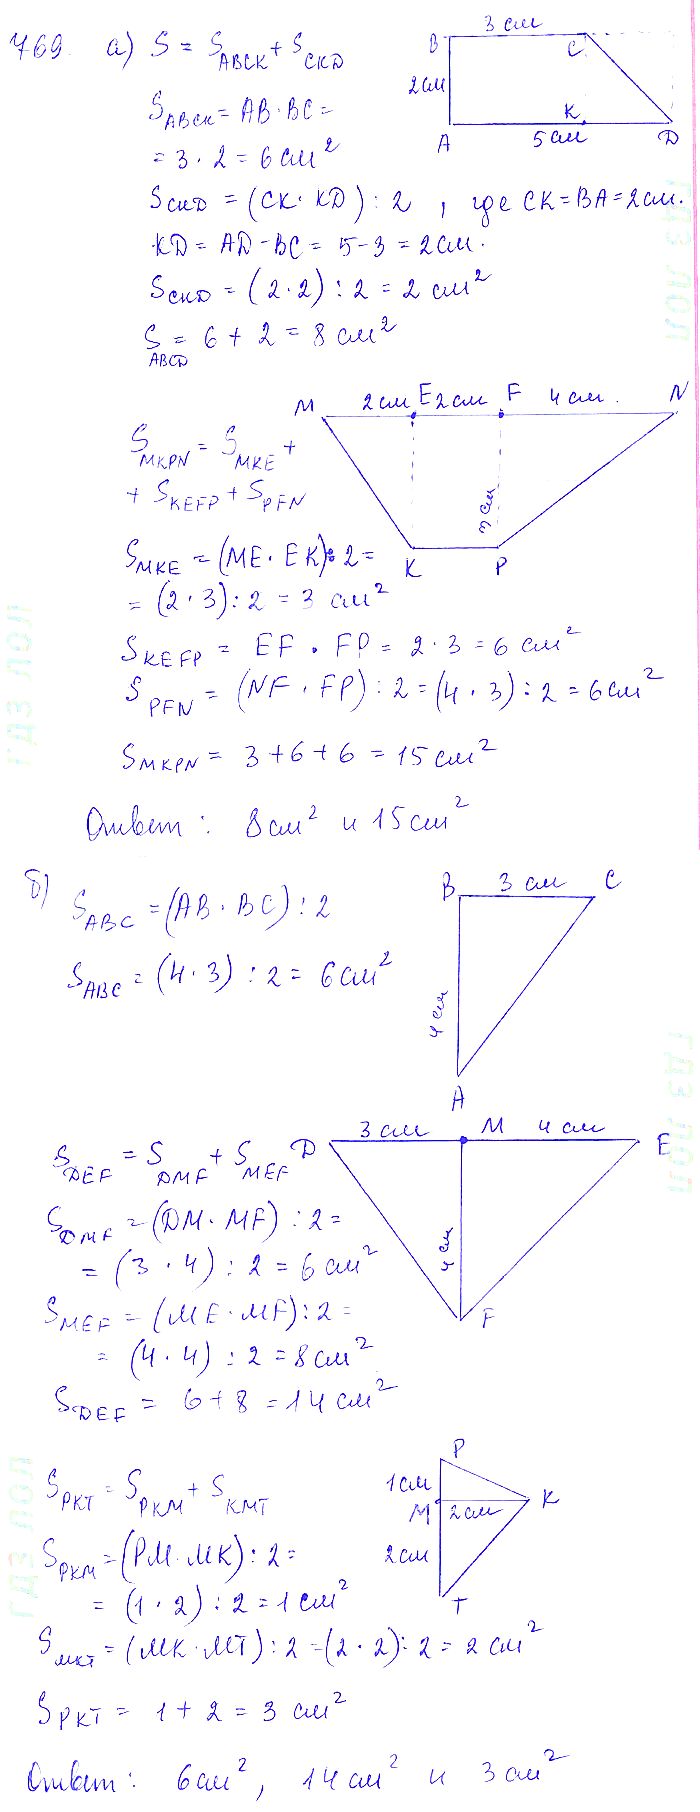 769. а) S = S ABCK + S CKD
B 3 см C
2 см
A K 5 см D
S ABCK = AB · BC =
= 3 · 2 = 6 см²
S CKD = (CK · KD) : 2 , где CK = BA = 2 см.
KD = AD - BC = 5 - 3 = 2 см.
S CKD = (2 · 2) : 2 = 2 см²
S ABCD = 6 + 2 = 8 см²
M 2 см E 2 см F 4 см. N
3 см
K P
S MKPN = S MKE +
+ S KEFP + S PFN
S MKE = (ME · EK) : 2 =
= (2 · 3) : 2 = 3 см²
S KEFP = EF · FP = 2 · 3 = 6 см²
S PFN = (NF · FP) : 2 = (4 · 3) : 2 = 6 см²
S MKPN = 3 + 6 + 6 = 15 см²
Ответ: 8 см² и 15 см²
б) S ABC = (AB · BC) : 2
B 3 см C
4 см
A
S ABC = (4 · 3) : 2 = 6 см²
S DEF = S DMF + S MEF
D 3 см M 4 см E
4 см
F
S DMF = (DM · MF) : 2 =
= (3 · 4) : 2 = 6 см²
S MEF = (ME · MF) : 2 =
= (4 · 4) : 2 = 8 см²
S DEF = 6 + 8 = 14 см²
S PKT = S PKM + S KMT
P
1 см
M 2 см K
2 см
T
S PKM = (PM · MK) : 2 =
= (1 · 2) : 2 = 1 см²
S MKT = (MK · MT) : 2 = (2 · 2) : 2 = 2 см²
S PKT = 1 + 2 = 3 см²
Ответ: 6 см², 14 см² и 3 см²